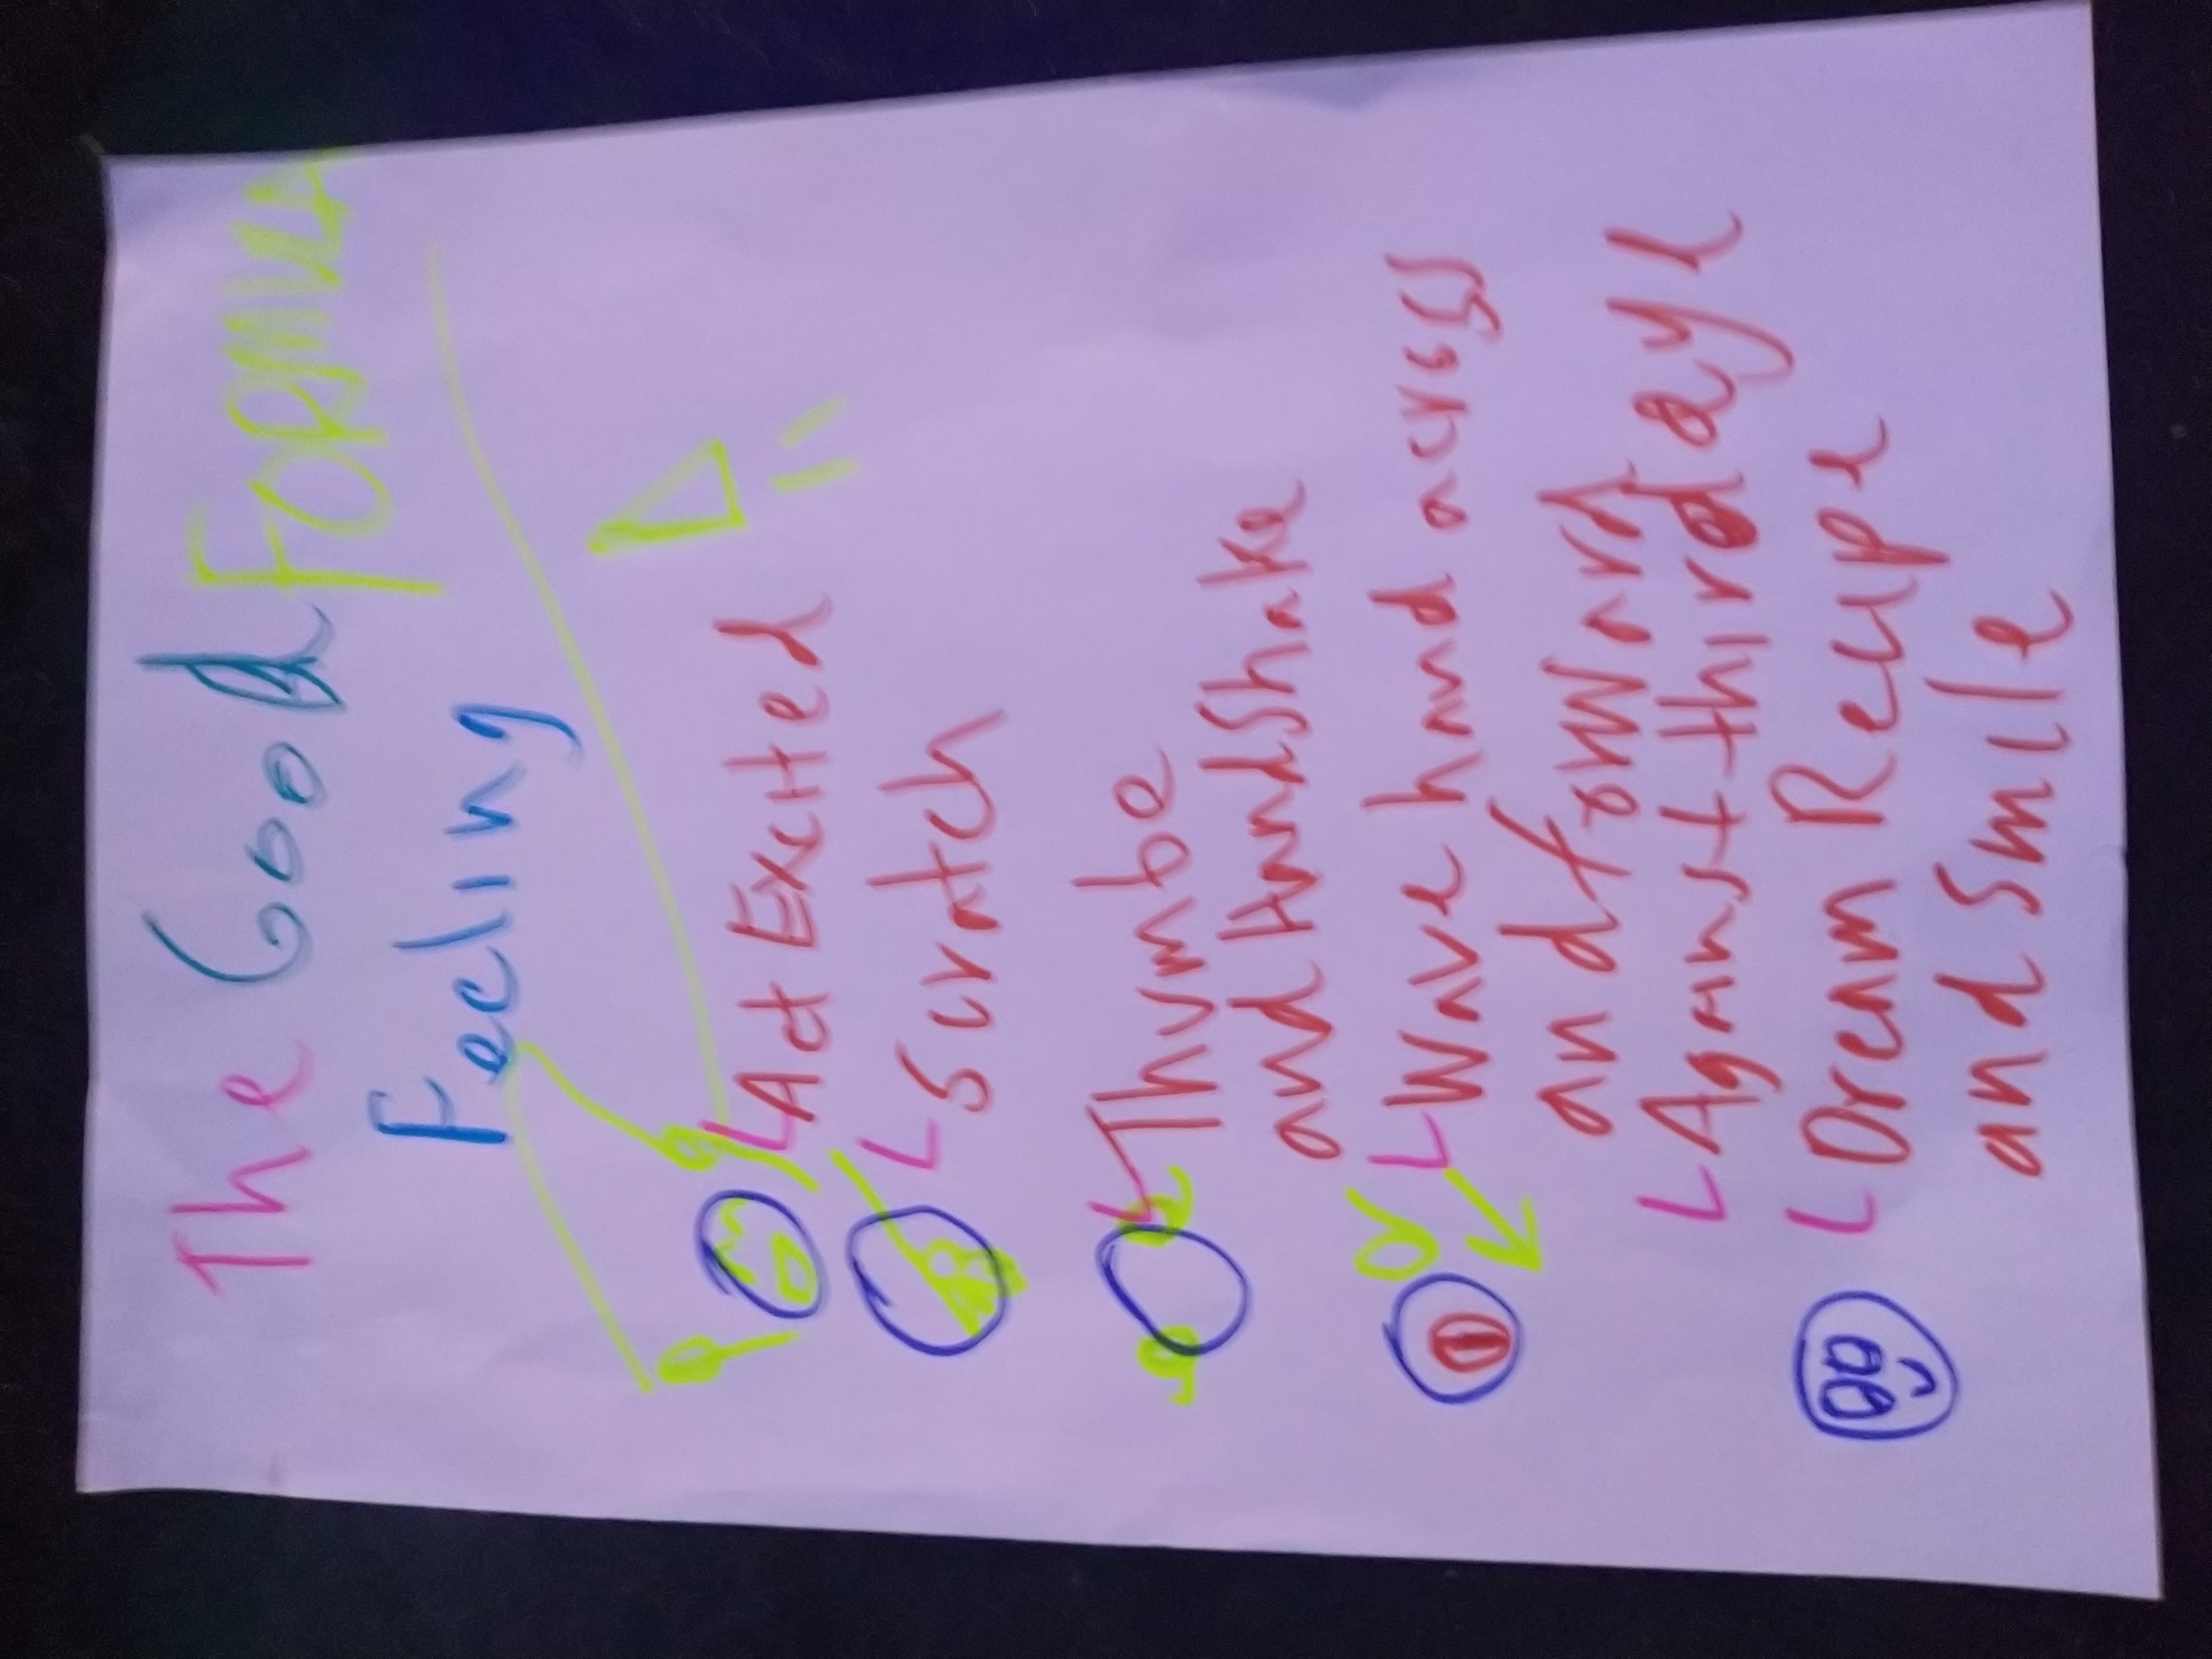 The Good FORMULA
Feeling
Act Excited
Scratch
Thumbe
and HandShake
Wave hand across
and
Against third aye
Dream Recipe
and Smile